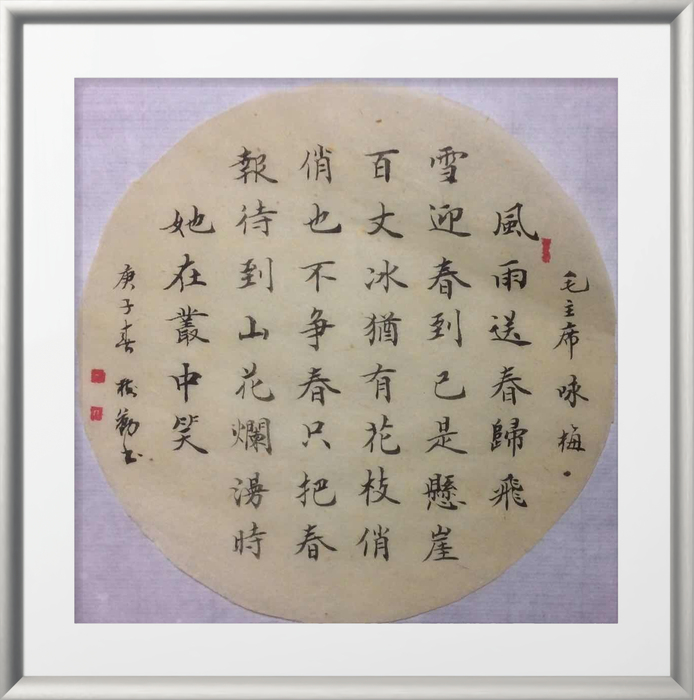 毛主席咏梅。
風雨送春歸飛
雪迎春到已是懸崖
百丈冰猶有花枝俏
俏也不争春只把春
報待到山花爛漫時
她在叢中笑
庚子春书